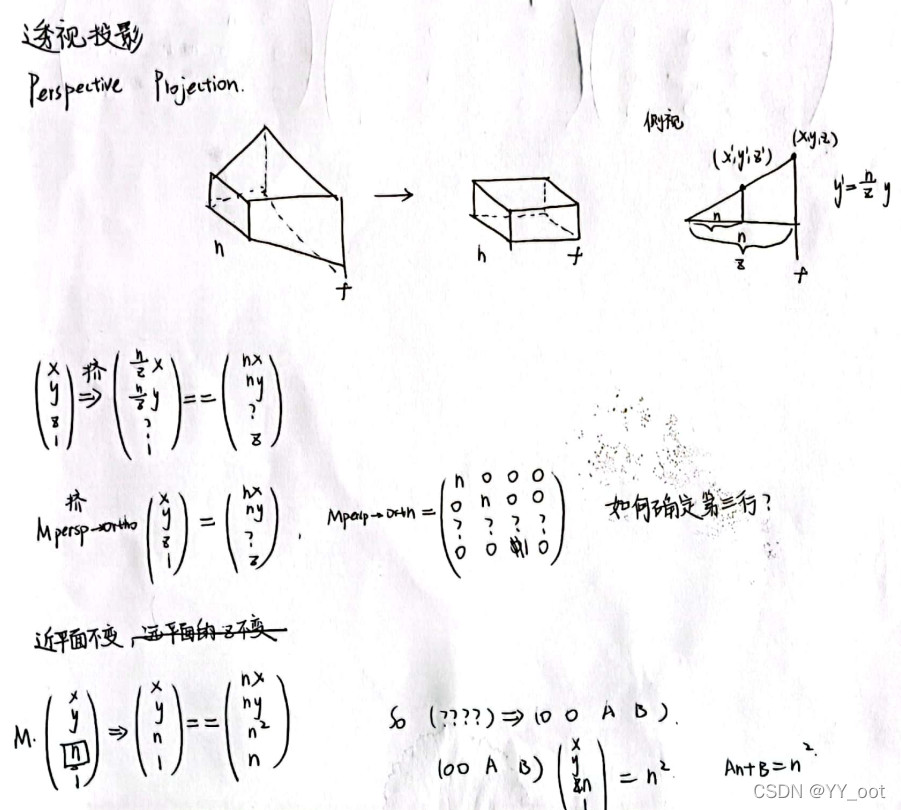 透视投影
Perspective Projection.
侧视
(x',y',z')
(x,y,z)
y' = n/z y
n
n
z
f
n
f
n
f
(x y z 1) 挤⇒ (n/z x n/z y ? 1) == (nx ny ? z)
挤
Mpersp→ortho (x y z 1) = (nx ny ? z) , Mpersp→orth = (n 0 0 0
0 n 0 0
? ? ? ?
0 0 1 0)
如何确定第三行?
近平面不变, 远平面的z不变
M. (x y n 1) ⇒ (x y n 1) == (nx ny n² n)
So (????) ⇒ (0 0 A B).
(00 A B) (x y n 1) = n²
An+B=n².
CSDN @YY_oot